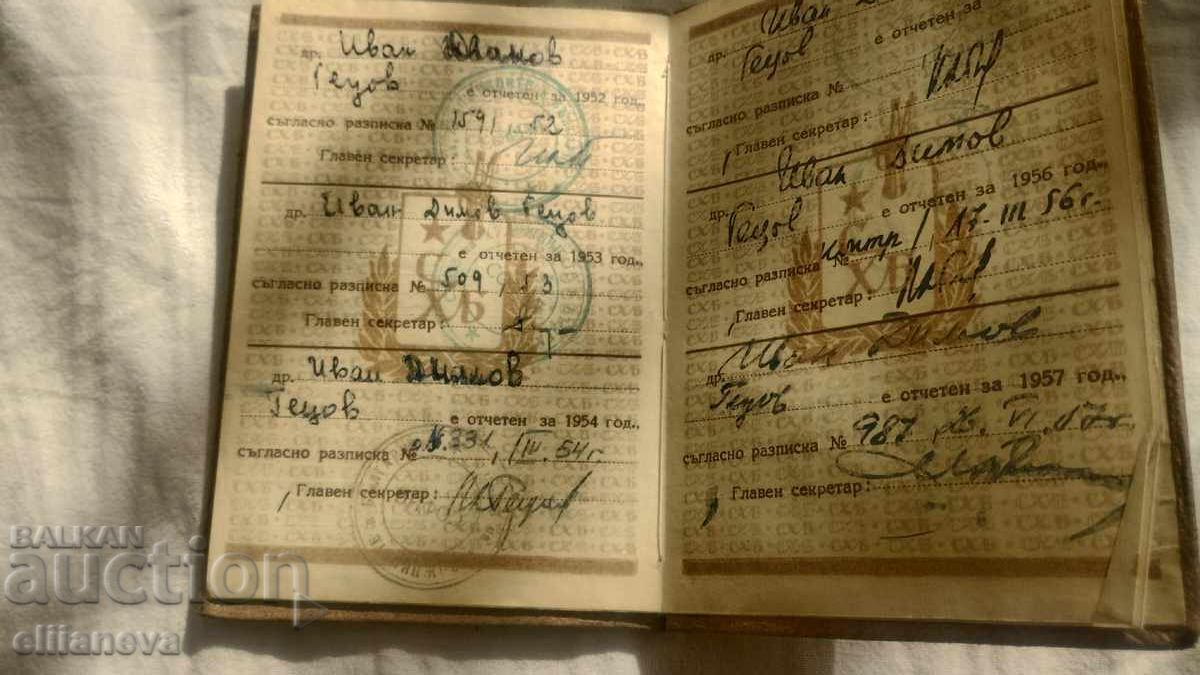 др. Иван Димов
Гецов е отчетен за 1952 год.,
съгласно разписка № 1591 / 52
Главен секретар:
др. Иван Димов Гецов
е отчетен за 1953 год.,
съгласно разписка № 509 / 53
Главен секретар:
др. Иван Димов
Гецов е отчетен за 1954 год.,
съгласно разписка № 331, 54 г.
Главен секретар:
СХБ
др. Иван
Гецов е отчетен за
съгласно разписка №
Главен секретар:
др. Иван Димов
Гецов е отчетен за 1956 год.,
съгласно разписка № 17-III 56 г.
Главен секретар:
др. Иван Димов
Гецов е отчетен за 1957 год.,
съгласно разписка № 987
Главен секретар:
СХБ
BALKAN
auction
eliianeva